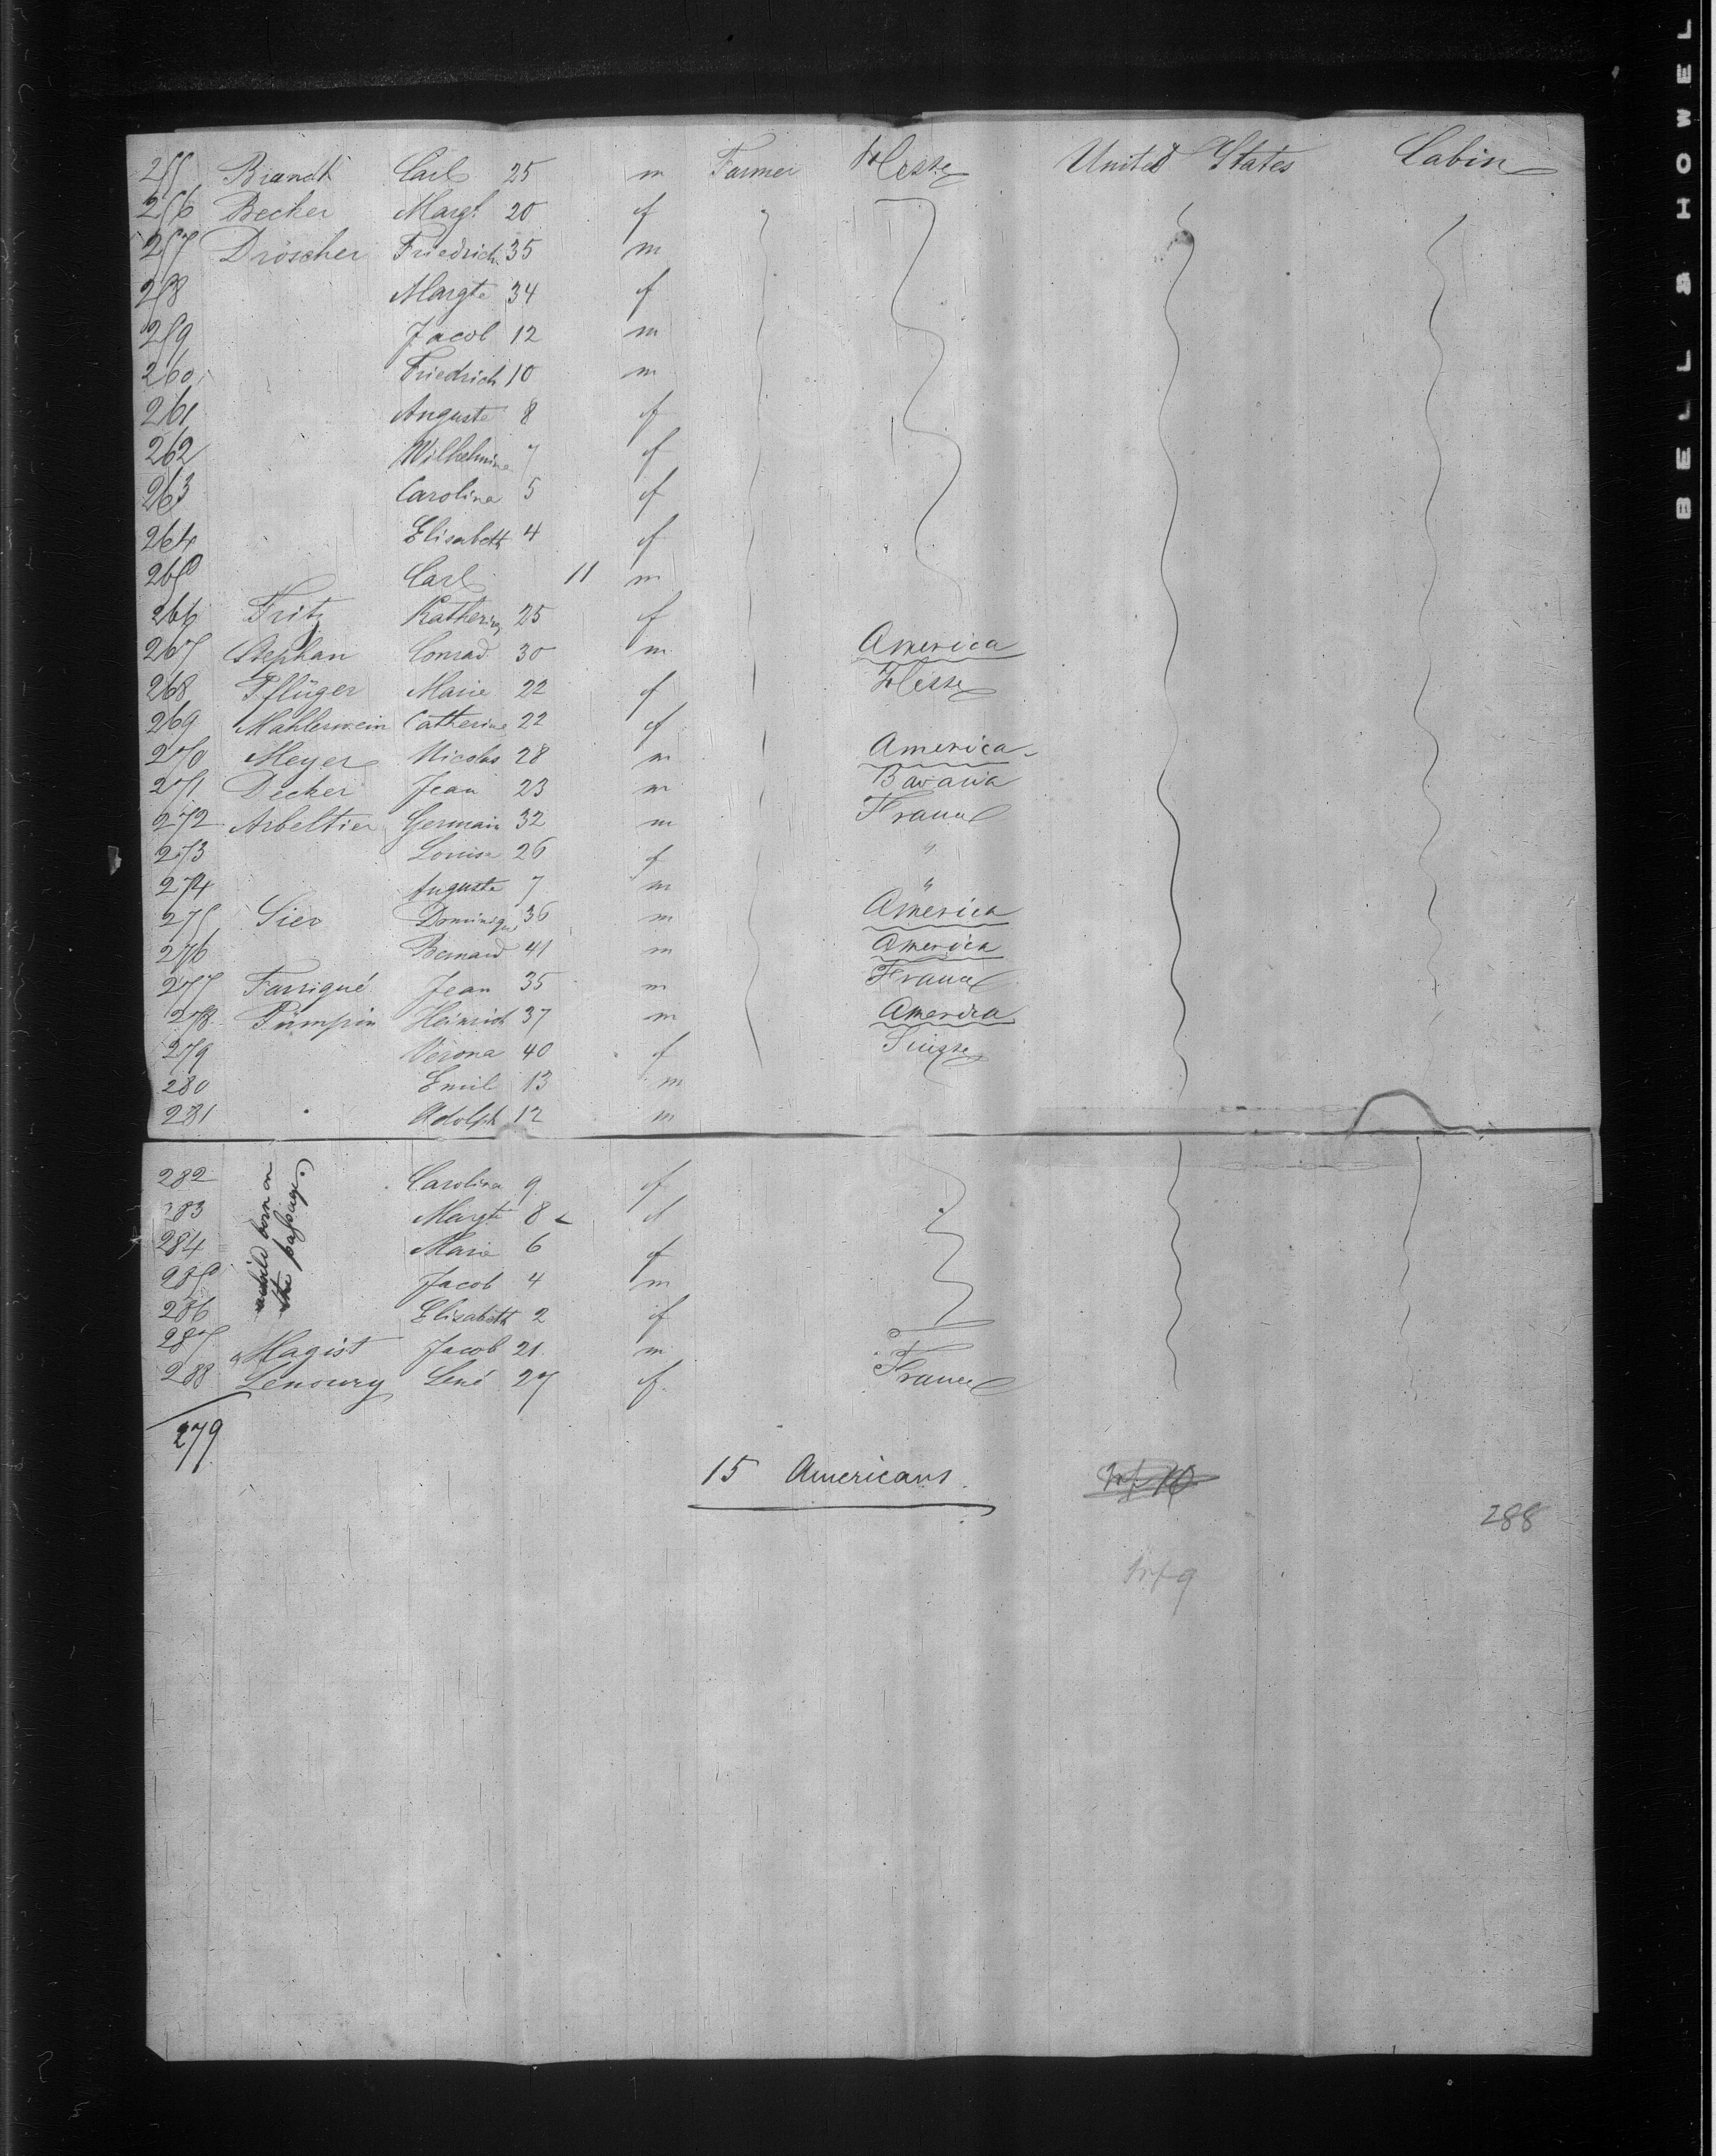 255 Brandt Carl 25 m Farmer Hesse United States Cabin
256 Becker Margt. 20 f
257 Dröscher Friedrich 35 m
258 Margte 34 f
259 Jacob 12 m
260 Friedrich 10 m
261 Auguste 8 f
262 Wilhelmine 7 f
263 Carolina 5 f
264 Elisabeth 4 f
265 Carl 11 m
266 Fritz Katherin 25 f
267 Stephan Conrad 30 m America
268 Pflüger Marie 22 f Hesse
269 Mahlerwein Catherine 22 f
270 Meyer Nicolas 28 m America
271 Decker Jean 23 m Bavaria
272 Arbeltier Germain 32 m France
273 Louise 26 f "
274 Auguste 7 m "
275 Sier Dominique 36 m America
276 Bernard 41 m America
277 Farrigué Jean 35 m France
278 Pümpin Heinrich 37 m America
279 Verona 40 f Suisse
280 Emil 13 m
281 Adolph 12 m
282 Carolina 9 f
283 Margt 8 f
284 Marie 6 f
285 Jacob 4 m
286 Elisabeth 2 f
child born on
the passage.
287 Magist Jacob 21 m
288 Lenoury Lené 27 f France
279
15 Americans
288
BELL & HOWEL